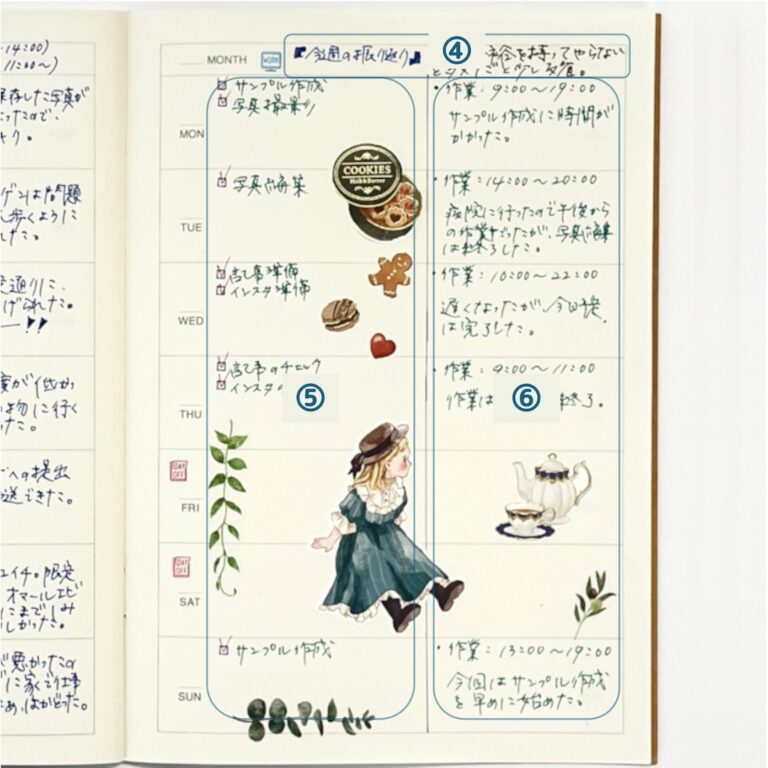 -14:00)
11:00~)
保存した写真が
ったので、
り。
ゲンは問題
歩くように
した。
通りに、
げられた。
ー!!
度が低かっ
物に行く
った。
への提出
送できた。
ユイチ。限定
オマールエビ
にまでしみ
しかった。
が悪かったの
に家で仕事
め、はかどった。
MONTH
WORK
『今週のお振り返り』
④
余合を持ってやらない
とタスクごと少し
MON
サンプル作成
写真撮影り
・作業:9:00~19:00
サンプル作成に時間が
かかった。
TUE
写真編集
COOKIES
Milk & Butter
・作業:14:00~20:00
病院に行ったので午後から
の作業だったが、写真編集
は終了した。
WED
記事準備
インスタ準備
・作業:10:00~22:00
遅くなったが、今日予定
は完了した。
THU
記事のチェック
インスタ
⑤
・作業:9:00~11:00
作業は
⑥
終了。
DAY OFF
FRI
DAY OFF
SAT
SUN
サンプル作成
・作業:13:00~19:00
今回はサンプル作成
を早めに始めた。